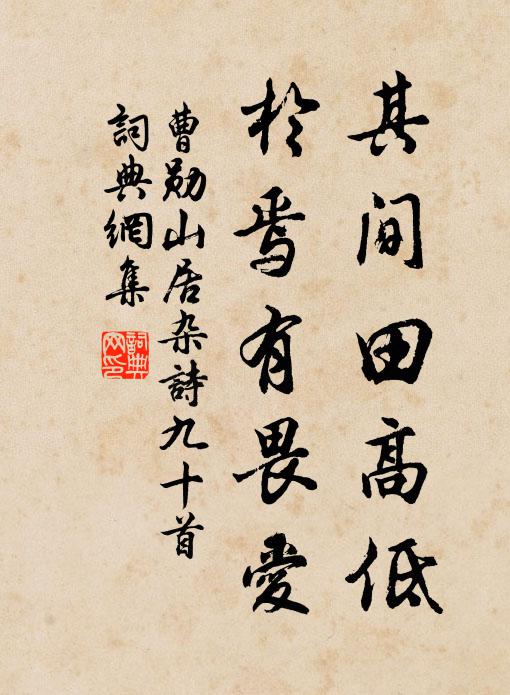 其间田高低
於焉有畏愛
曹勋山居杂詩九十首
詞典網集
詞典网印